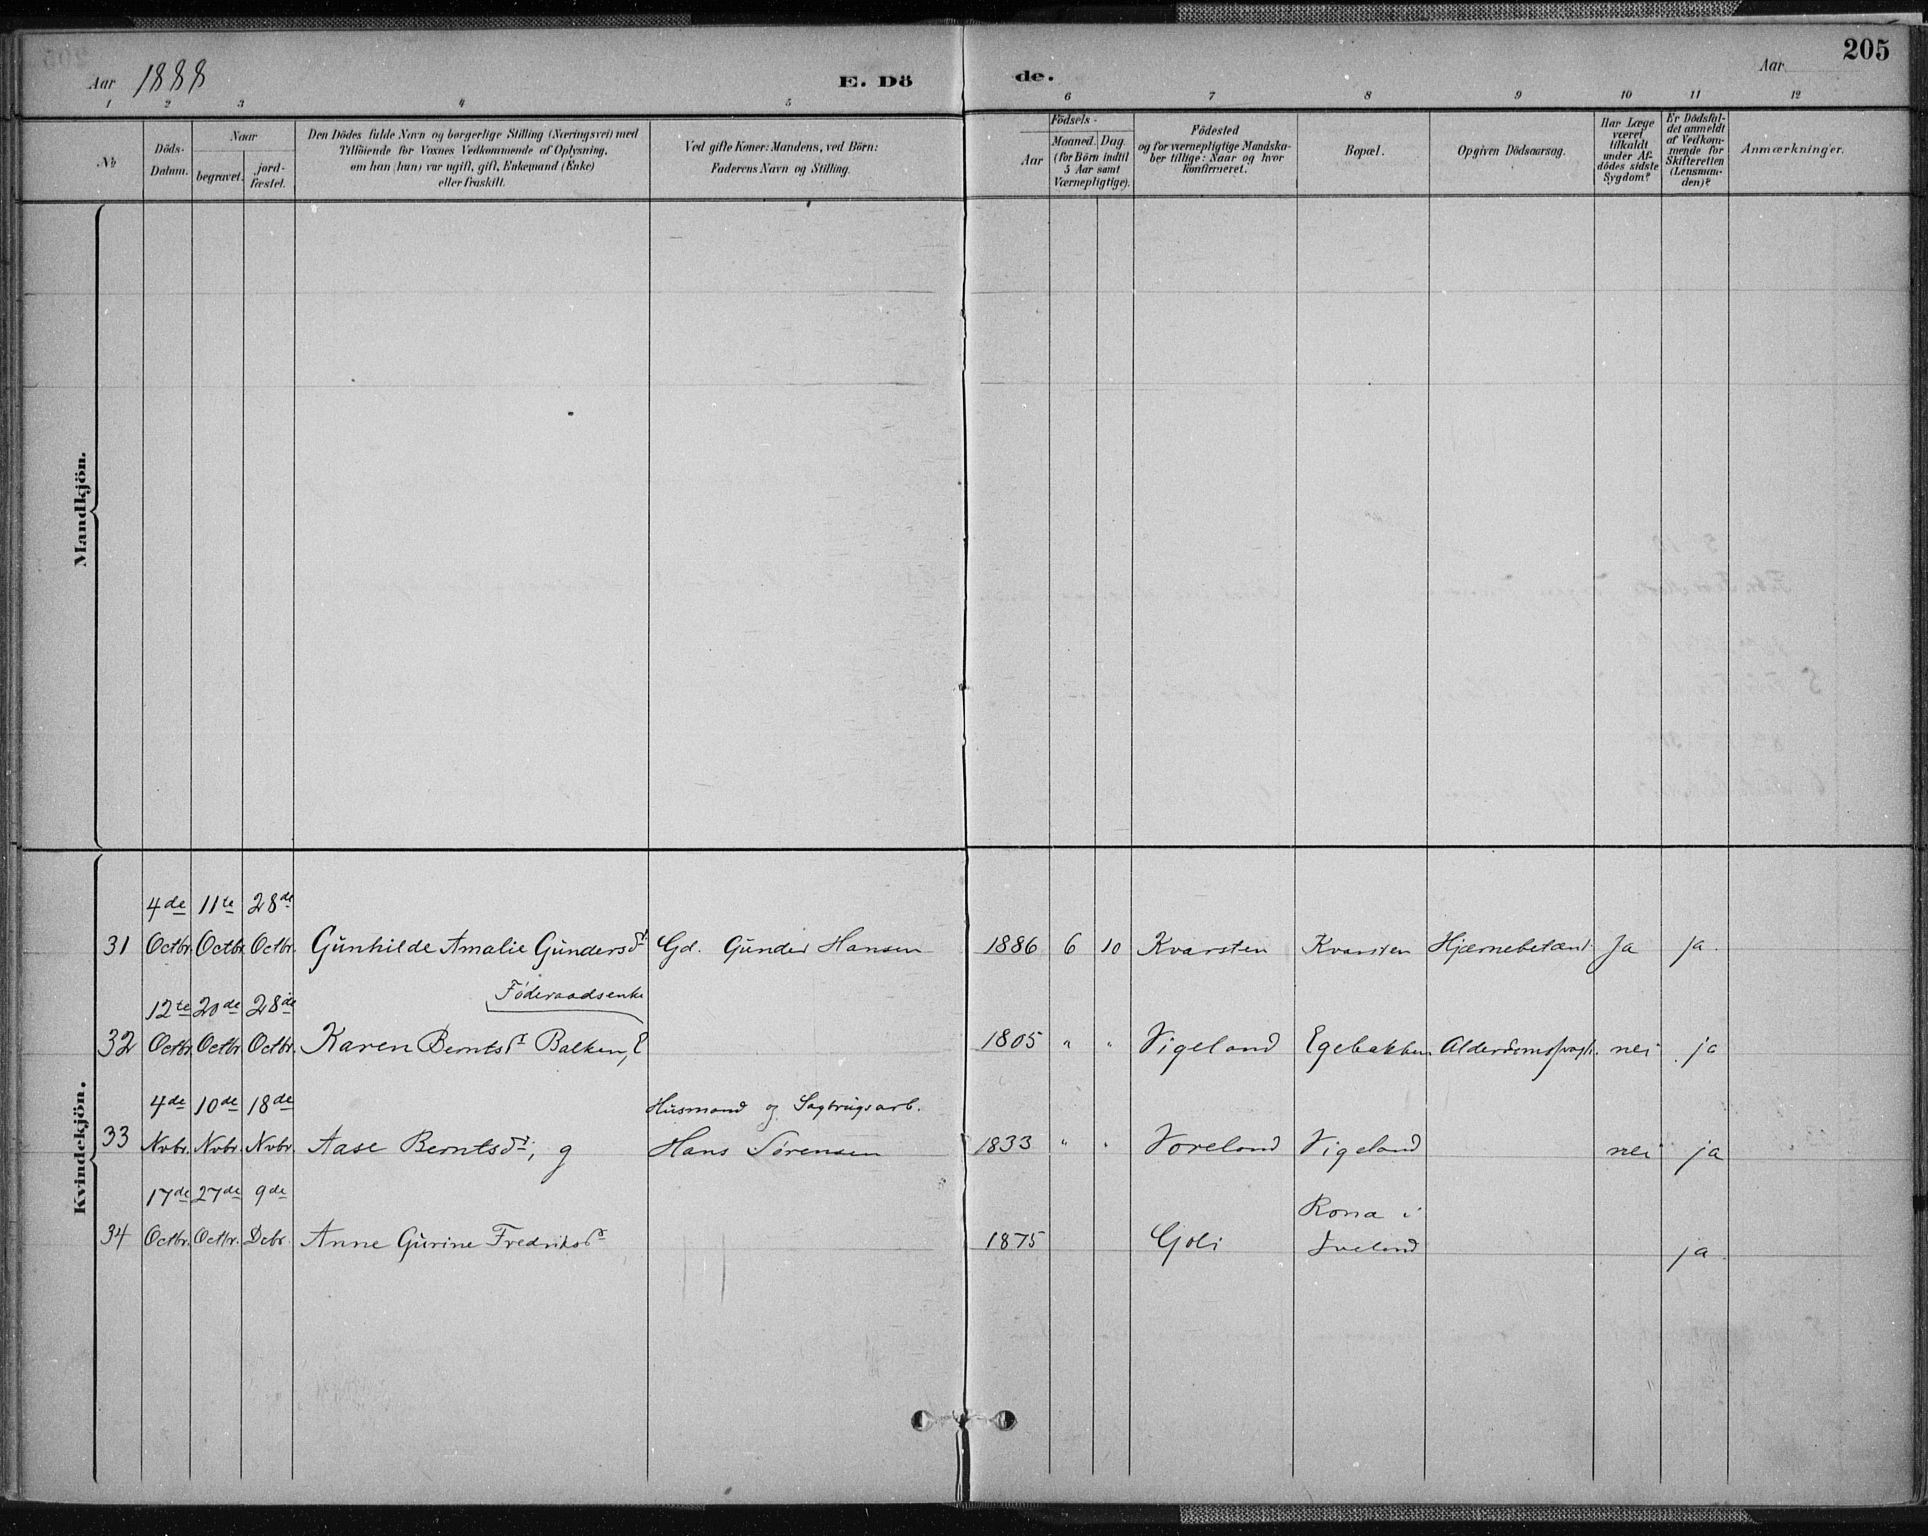 205
Aar 1888
E. Dö
de.
Aar
1 2 3 4 5 6 7 8 9 10 11 12
№
Döds-Datum.
Naar
begravet.
jord-fæstet.
Den Dödes fulde Navn og borgerlige Stilling (Næringsvei) med
Tilföiende for Voxnes Vedkommende af Oplysning,
om han (hun) var ugift, gift, Enkemand (Enke)
eller fraskilt.
Ved gifte Koner: Mandens, ved Börn:
Faderens Navn og Stilling.
Födsels-
Aar
Maaned. Dag.
(for Börn indtil
5 Aar samt
Værnepligtige).
Födested
og for værnepligtige Mandska-
ber tillige: Naar og hvor
konfirmeret.
Bopæl.
Opgiven Dödsaarsag.
Har Læge
været
tilkaldt
under Af-
dödes sidste
Sygdom?
Er Dödsfal-
det anmeldt
af Vedkom-
mende for
Skifteretten
(Lensman-
den)?
Anmærkninger.
Mandkjön.
Kvindekjön.
4de 11te 28de
31 Octbr. Octbr. Octbr. Gunhilde Amalie Gundersdr Gd. Gunder Hansen 1886 6 10 Kvarsten Kvarsten Hjærnebetænd. Ja ja.
Föderaadsenke
12te 20de 28de
32 Octbr. Octbr. Octbr. Karen Berntsdr Balken, E 1805 " " Vigeland Egebakken Alderdomssvagh. nei ja
4de 10de 18de Husmand og Sagbrugsarb.
33 Nvbr. Nvbr. Nvbr. Aase Berntsdr, g Hans Sørensen 1833 " " Voreland Vigeland nei ja
17de 27de 9de Rosa i
34 Octbr. Octbr. Dcbr. Anne Gurine Fredriksdr 1875 Goli Iveland ja.